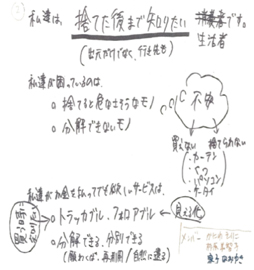 私達は、捨てた後まで知りたい 消費者です。
生活者
(出元だけでなく、行き先も)
私達が困っているのは、
○ 捨てると危なそうなモノ
○ 分解できないモノ
不安
買えない 捨てられない
・カーテン
・ベッド
・パソコン
・ケータイ
私達がお金を払ってでも欲しいサービスは、
買う時に
○トラッカブル、フォロアブル ← 見える化
○分解できる、分別できる
(願わくば、再利用/自然に還る)
メンバー